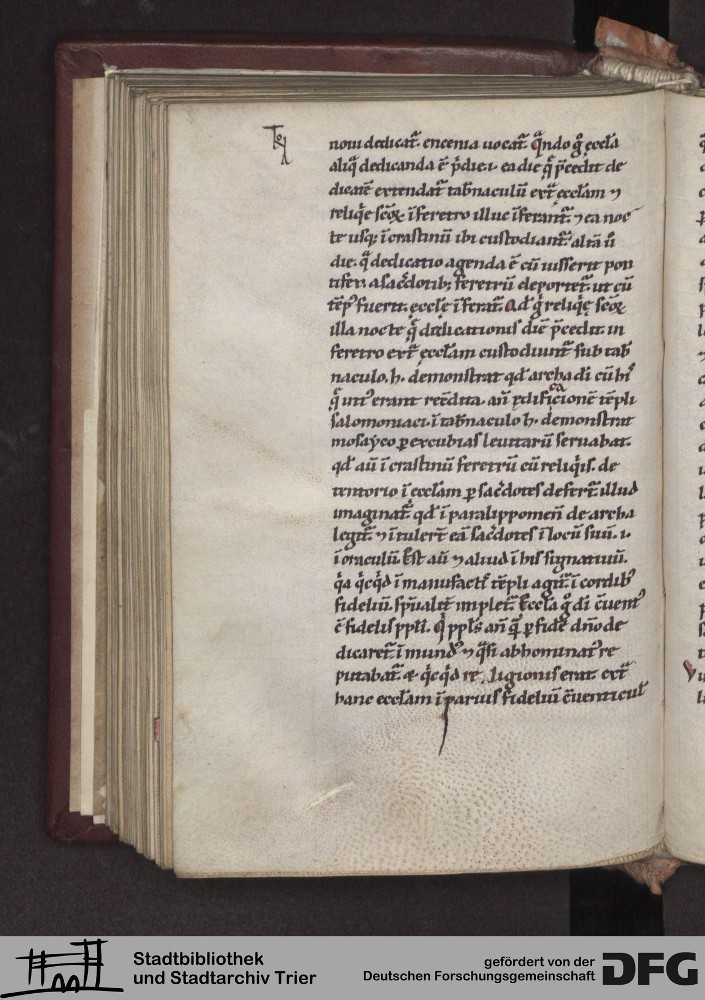 noui dedicat̄. encenia uocat̄. q̄ndo g̊ eccl̄a
aliq̄ dedicanda ē p̄die.i. ea die q̄ p̄cedit de
dicatē extendat̄ tab̄naculū ext̄ eccl̄am ⁊
reliq̄e sc̄oꝝ ī feretro illuc īferant̄. ⁊ ea noc
te usq; ī crastinū ibi custodiant̄
die. q̄ dedicatio agenda ē cū iusserit pon
tifex a sac̄dotib; feretrū deportet̄. ut cū
tēp' fuerit. eccl̄ę īferat̄. Ad g̊ reliq̄ę sc̄oꝝ
illa nocte q̄ dedicationis diē p̄cedit in
feretro ext̄ eccl̄am custodiunt̄ sub tab̄
naculo. h. demonstrat qd̄ archa di cū hi'
q̄ int' erant recd̄ita. añ ędificationē tēpli
salomoniaci. ī tab̄naculo h. demonstrat
mosayco ꝑ excubias leuitarū seruabat̄.
qd̄ aū ī crastinū feretrū cū reliq̄is. de
tentorio ī eccl̄am ꝑ sac̄dotes defert̄. illud
imaginat̄. qd̄ ī paralippomeñ de archa
legit̄. ⁊ ītulert̄ eā sac̄dotes ī locū suū. i.
ī oraculū. Est aū ⁊ aliud ī his signatiuū.
q̄a q̄cq̄d ī manufacti' tēpli agit̄. ī cordib'
fideliū. sp̄ualit̄ implet̄. Eccl̄a g̊ di c̄uent'
ē fidelis ppl̄i. Q̄ ppl̄s añ q̄ ꝑ fidē dn̄o de
dicaret̄. īmund' ⁊ q̄si abhominat' re
putabat̄. & q̄cq̄d re ligionis erat ext̄
hanc eccl̄am ī pariis fideliū c̄uenticul'
Stadtbibliothek
und Stadtarchiv Trier
gefördert von der
Deutschen Forschungsgemeinschaft
DFG